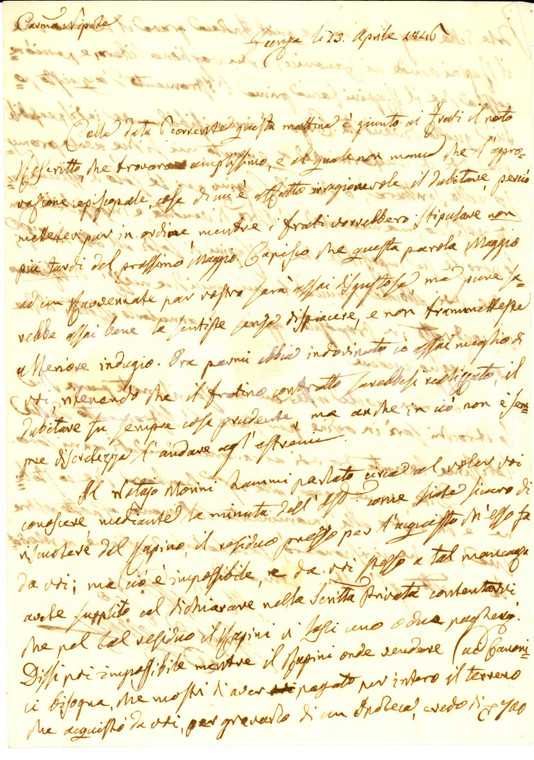 Carmo Nipote
li 23. Aprile 1846
Colla data 8 corrente questa mattina è giunto ai frati il noto
Rescritto che trovano amplissimo, e al quale non manca che l'appro-
vazione episcopale, cosa di cui è affatto irragionevole il dubitare, perciò
mettetevi pur in ordine mentre i frati vorrebbero stipulare non
più tardi del prossimo Maggio. Capisco che questa parola Maggio
ad un par vostro sarà assai disgustosa ma pure sa-
rebbe assai bene la sentiste senza dispiacere, e non frammetteste
ulteriore indugio. Pra parmi abbia indovinato io assai meglio di
voi, ritenendo che il fratino contratto sarebbesi realizzato, il
dubitare fu sempre cosa prudente, ma anche in ciò non è sem-
pre discretezza l'andare agl'estremi.
Il Notajo Monni hammi parlato circa al voler voi
conoscere mediante la minuta dell' come siate sicuro di
riscuotere dal Papini, il residuo prezzo per l'acquisto ch'Esso fa
da voi; ma ciò è impossibile, e da voi stesso a tal mancanza
avete supplito col dichiarare nella Scritta Privata contentarvi
che pel tal residuo il Papini vi uno o due pagherò.
Dissi poi impossibile mentre il Papini onde vendere (ai Canoni-
ci bisogna, che mostri di aver pagato per intero il terreno
che acquistò da voi, per gravarlo di un Ipoteca, credo di